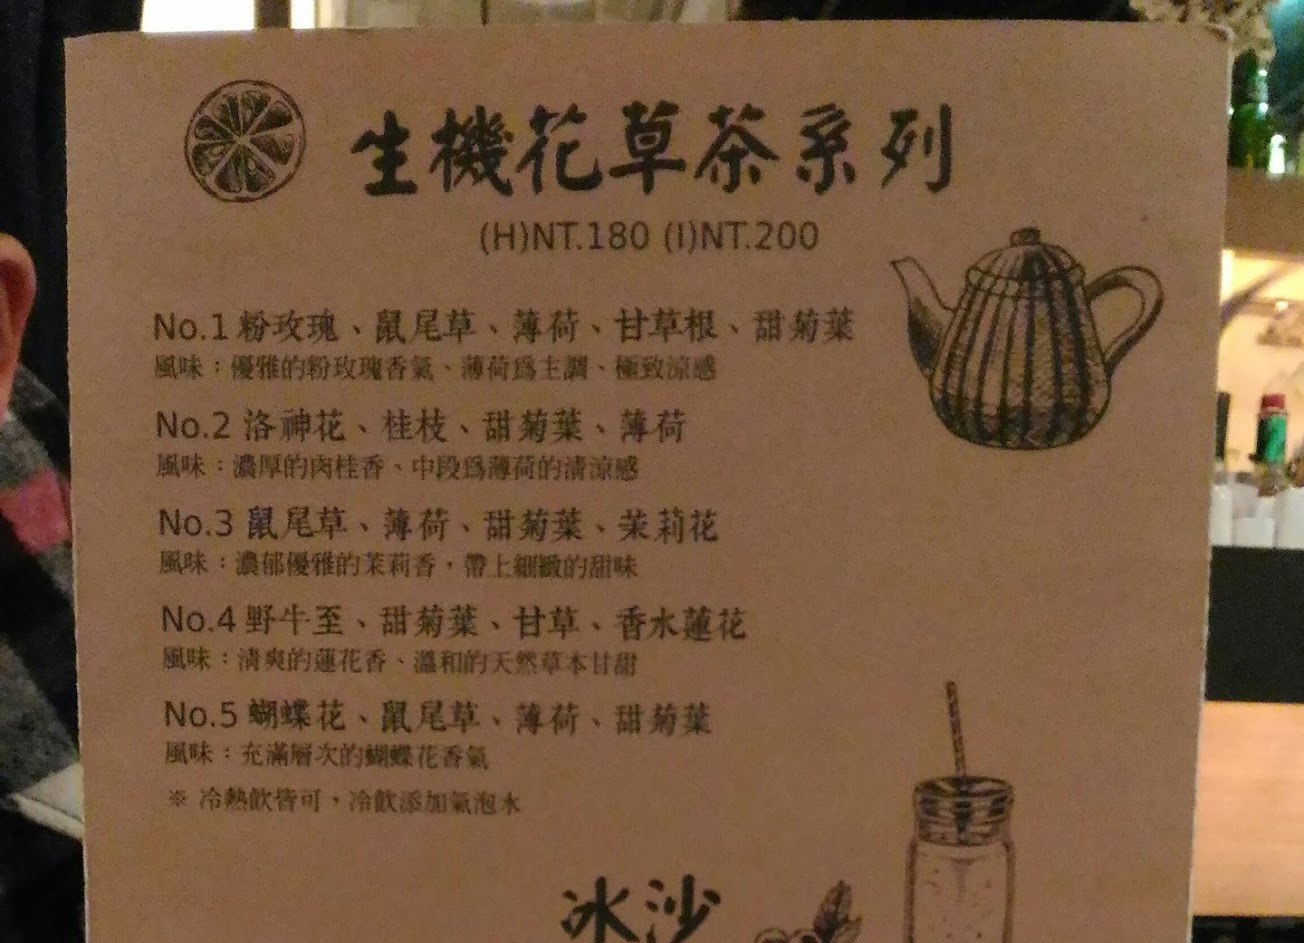 生機花草茶系列
(H)NT.180 (I)NT.200
No.1 粉玫瑰、鼠尾草、薄荷、甘草根、甜菊葉
風味：優雅的粉玫瑰香氣、薄荷為主調、極致涼感
No.2 洛神花、桂枝、甜菊葉、薄荷
風味：濃厚的肉桂香、中段為薄荷的清涼感
No.3 鼠尾草、薄荷、甜菊葉、茉莉花
風味：濃郁優雅的茉莉香，帶上細緻的甜味
No.4 野牛至、甜菊葉、甘草、香水蓮花
風味：清爽的蓮花香、溫和的天然草本甘甜
No.5 蝴蝶花、鼠尾草、薄荷、甜菊葉
風味：充滿層次的蝴蝶花香氣
※ 冷熱飲皆可，冷飲添加氣泡水
冰沙